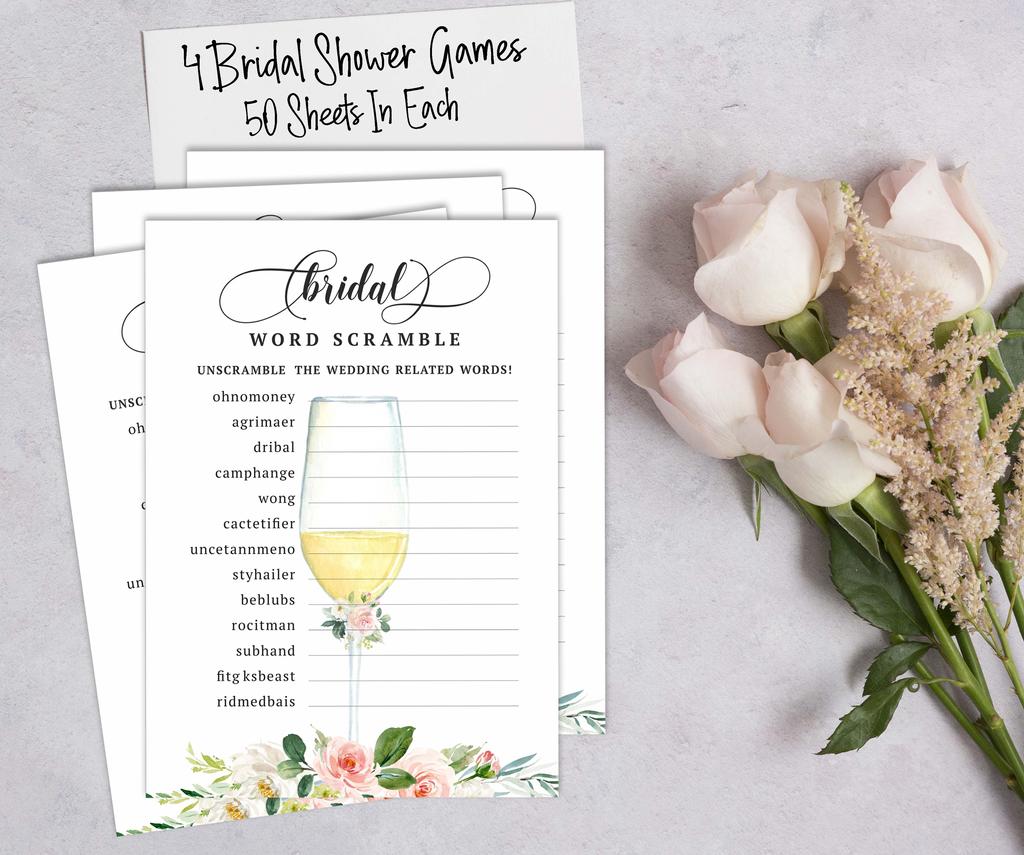 4 Bridal Shower Games
50 Sheets In Each
bridal
WORD SCRAMBLE
UNSCRAMBLE THE WEDDING RELATED WORDS!
ohnomoney
agrimaer
dribal
camphange
wong
cactetifier
uncetannmeno
styhailer
beblubs
rocitman
subhand
fitg ksbeast
ridmedbais
UNSC
oh
un